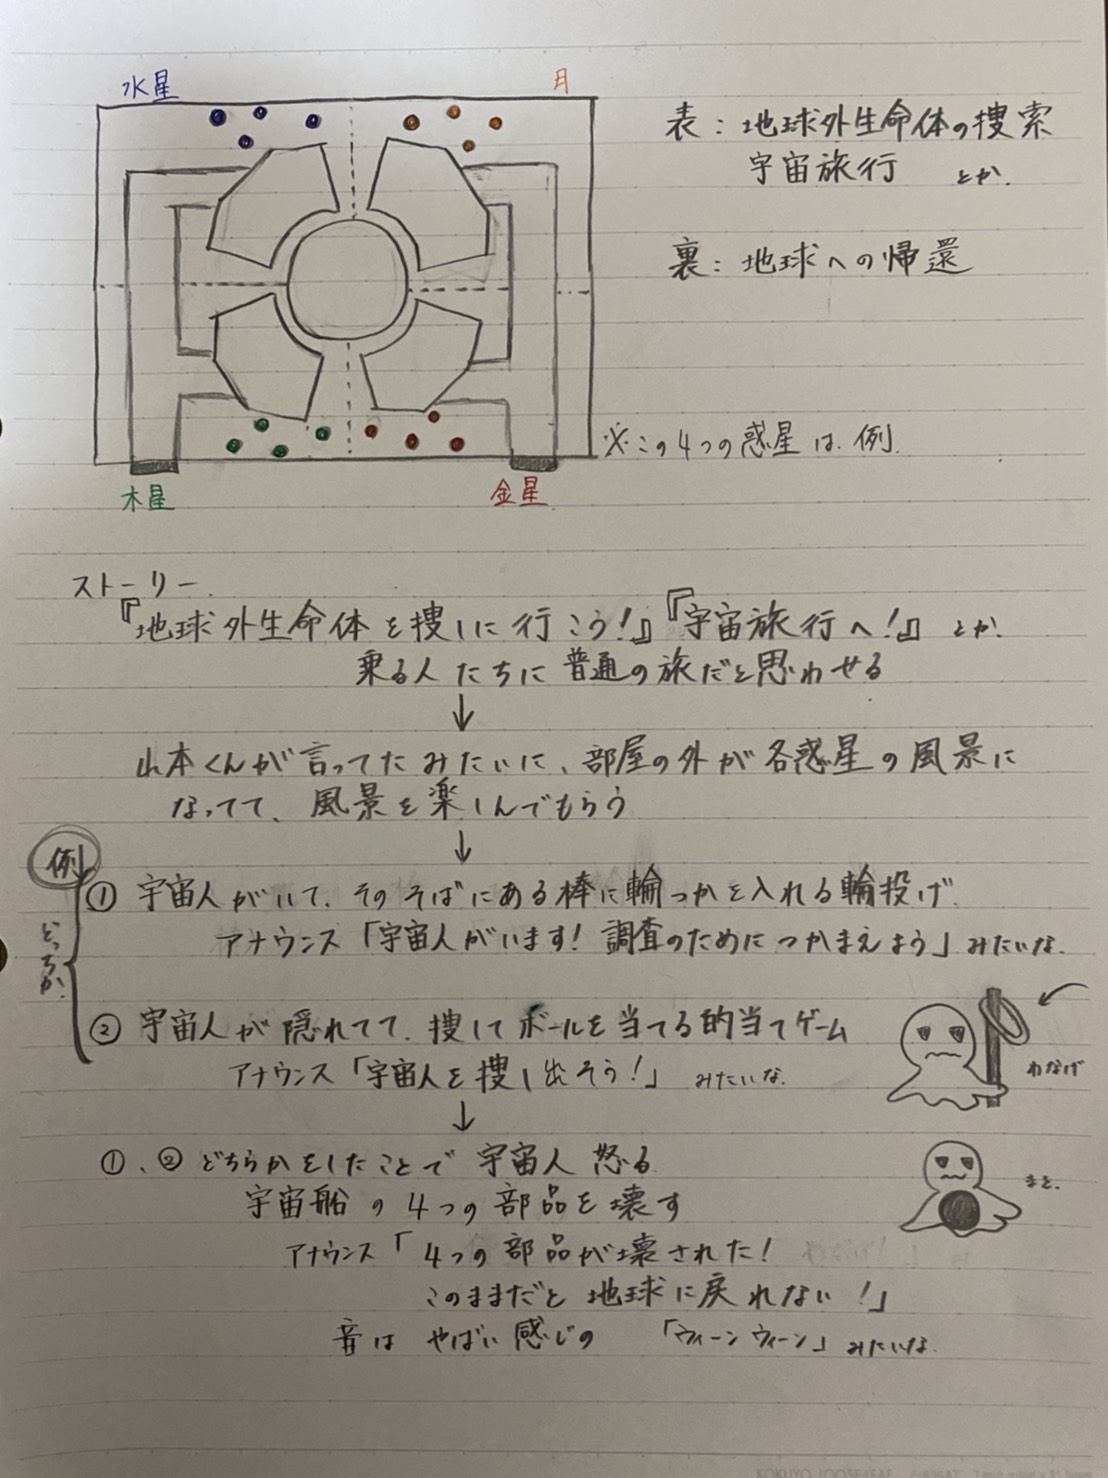 水星
月
表：地球外生命体の捜索
宇宙旅行 とか.
裏：地球への帰還
※この4つの惑星は例.
木星
金星
ストーリー.
『地球外生命体を捜しに行こう!』『宇宙旅行へ!』とか.
乗る人たちに普通の旅だと思わせる
↓
山本くんが言ってたみたいに、部屋の外が各惑星の風景に
なってて、風景を楽しんでもらう
↓
例
どっちか.
① 宇宙人がいて、そのそばにある棒に輪っかを入れる輪投げ.
アナウンス「宇宙人がいます! 調査のためにつかまえよう」みたいな.
② 宇宙人が隠れてて、捜してボールを当てる的当てゲーム
アナウンス「宇宙人を捜し出そう!」みたいな.
わなげ
↓
①、②どちらかをしたことで宇宙人怒る
まと.
宇宙船の4つの部品を壊す
アナウンス「4つの部品が壊された!
このままだと地球に戻れない!」
音はやばい感じの「ウィーンウィーン」みたいな.